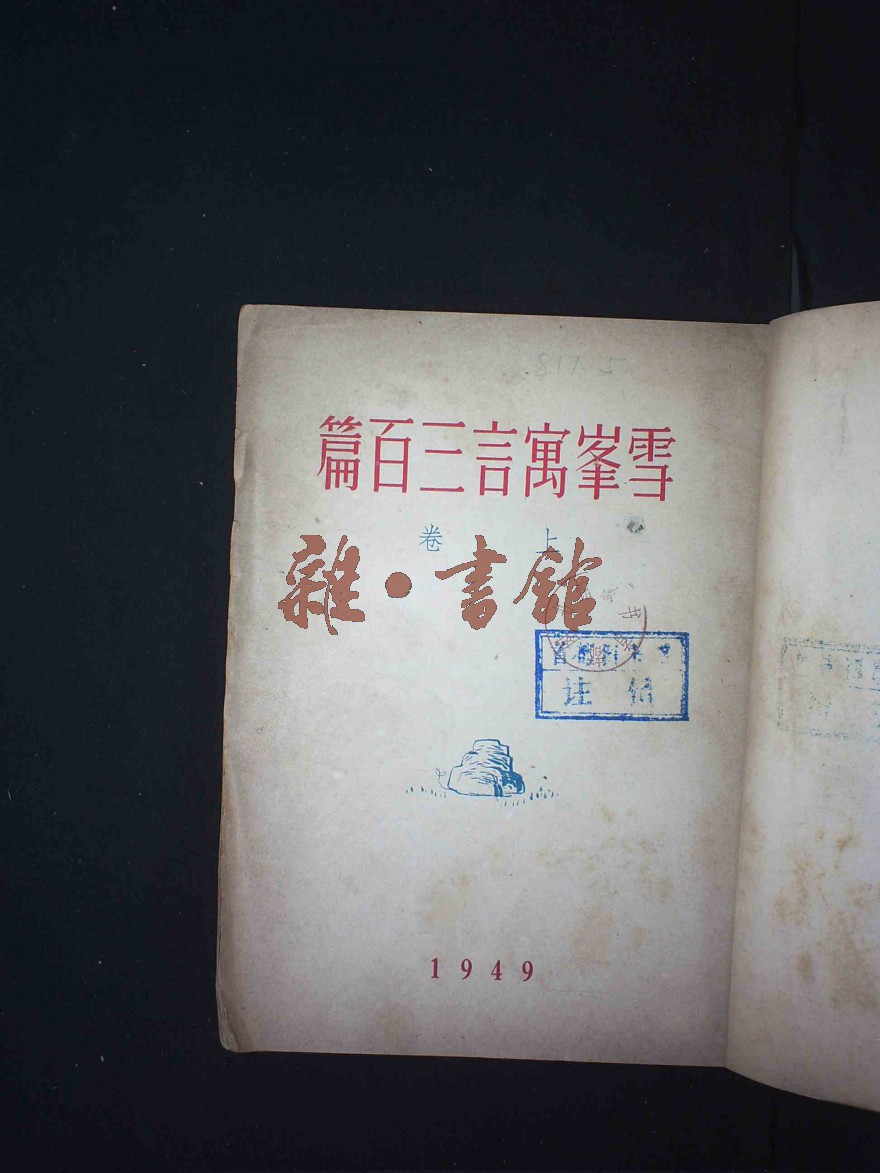 817.5
雪峯寓言三百篇
上卷
雜·書館
注销
1949